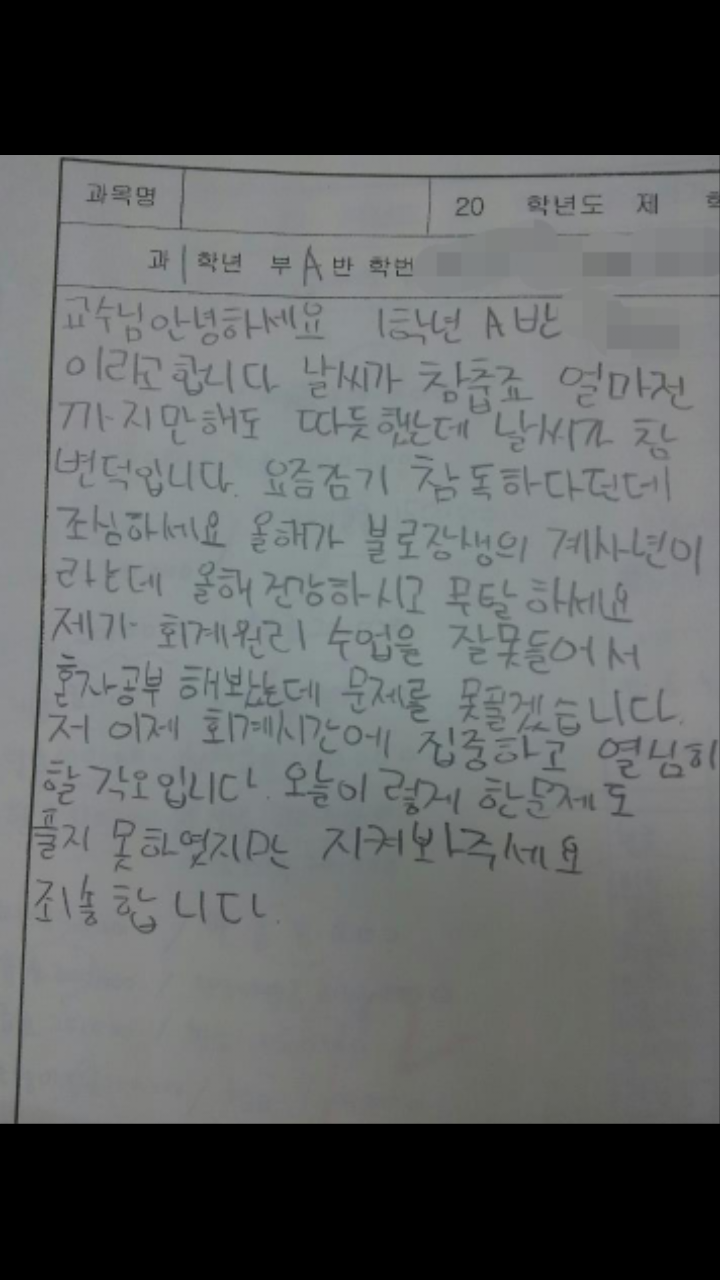 과목명 20 학년도 제 학
과 1 학년 부 A 반 학번
교수님 안녕하세요 1학년 A반
이라고합니다 날씨가 참춥죠 얼마전
까지만해도 따듯했는데 날씨가 참
변덕입니다. 요즘감기 참독하다던데
조심하세요 올해가 불로장생의 계사년이
라는데 올해건강하시고 무탈하세요
제가 회계원리 수업을 잘못들어서
혼자공부 해봤는데 문제를 못풀겠습니다.
저 이제 회계시간에 집중하고 열님히
할 각오입니다. 오늘이렇게 한문제도
풀지 못하였지만 지켜봐주세요
죄송합니다.